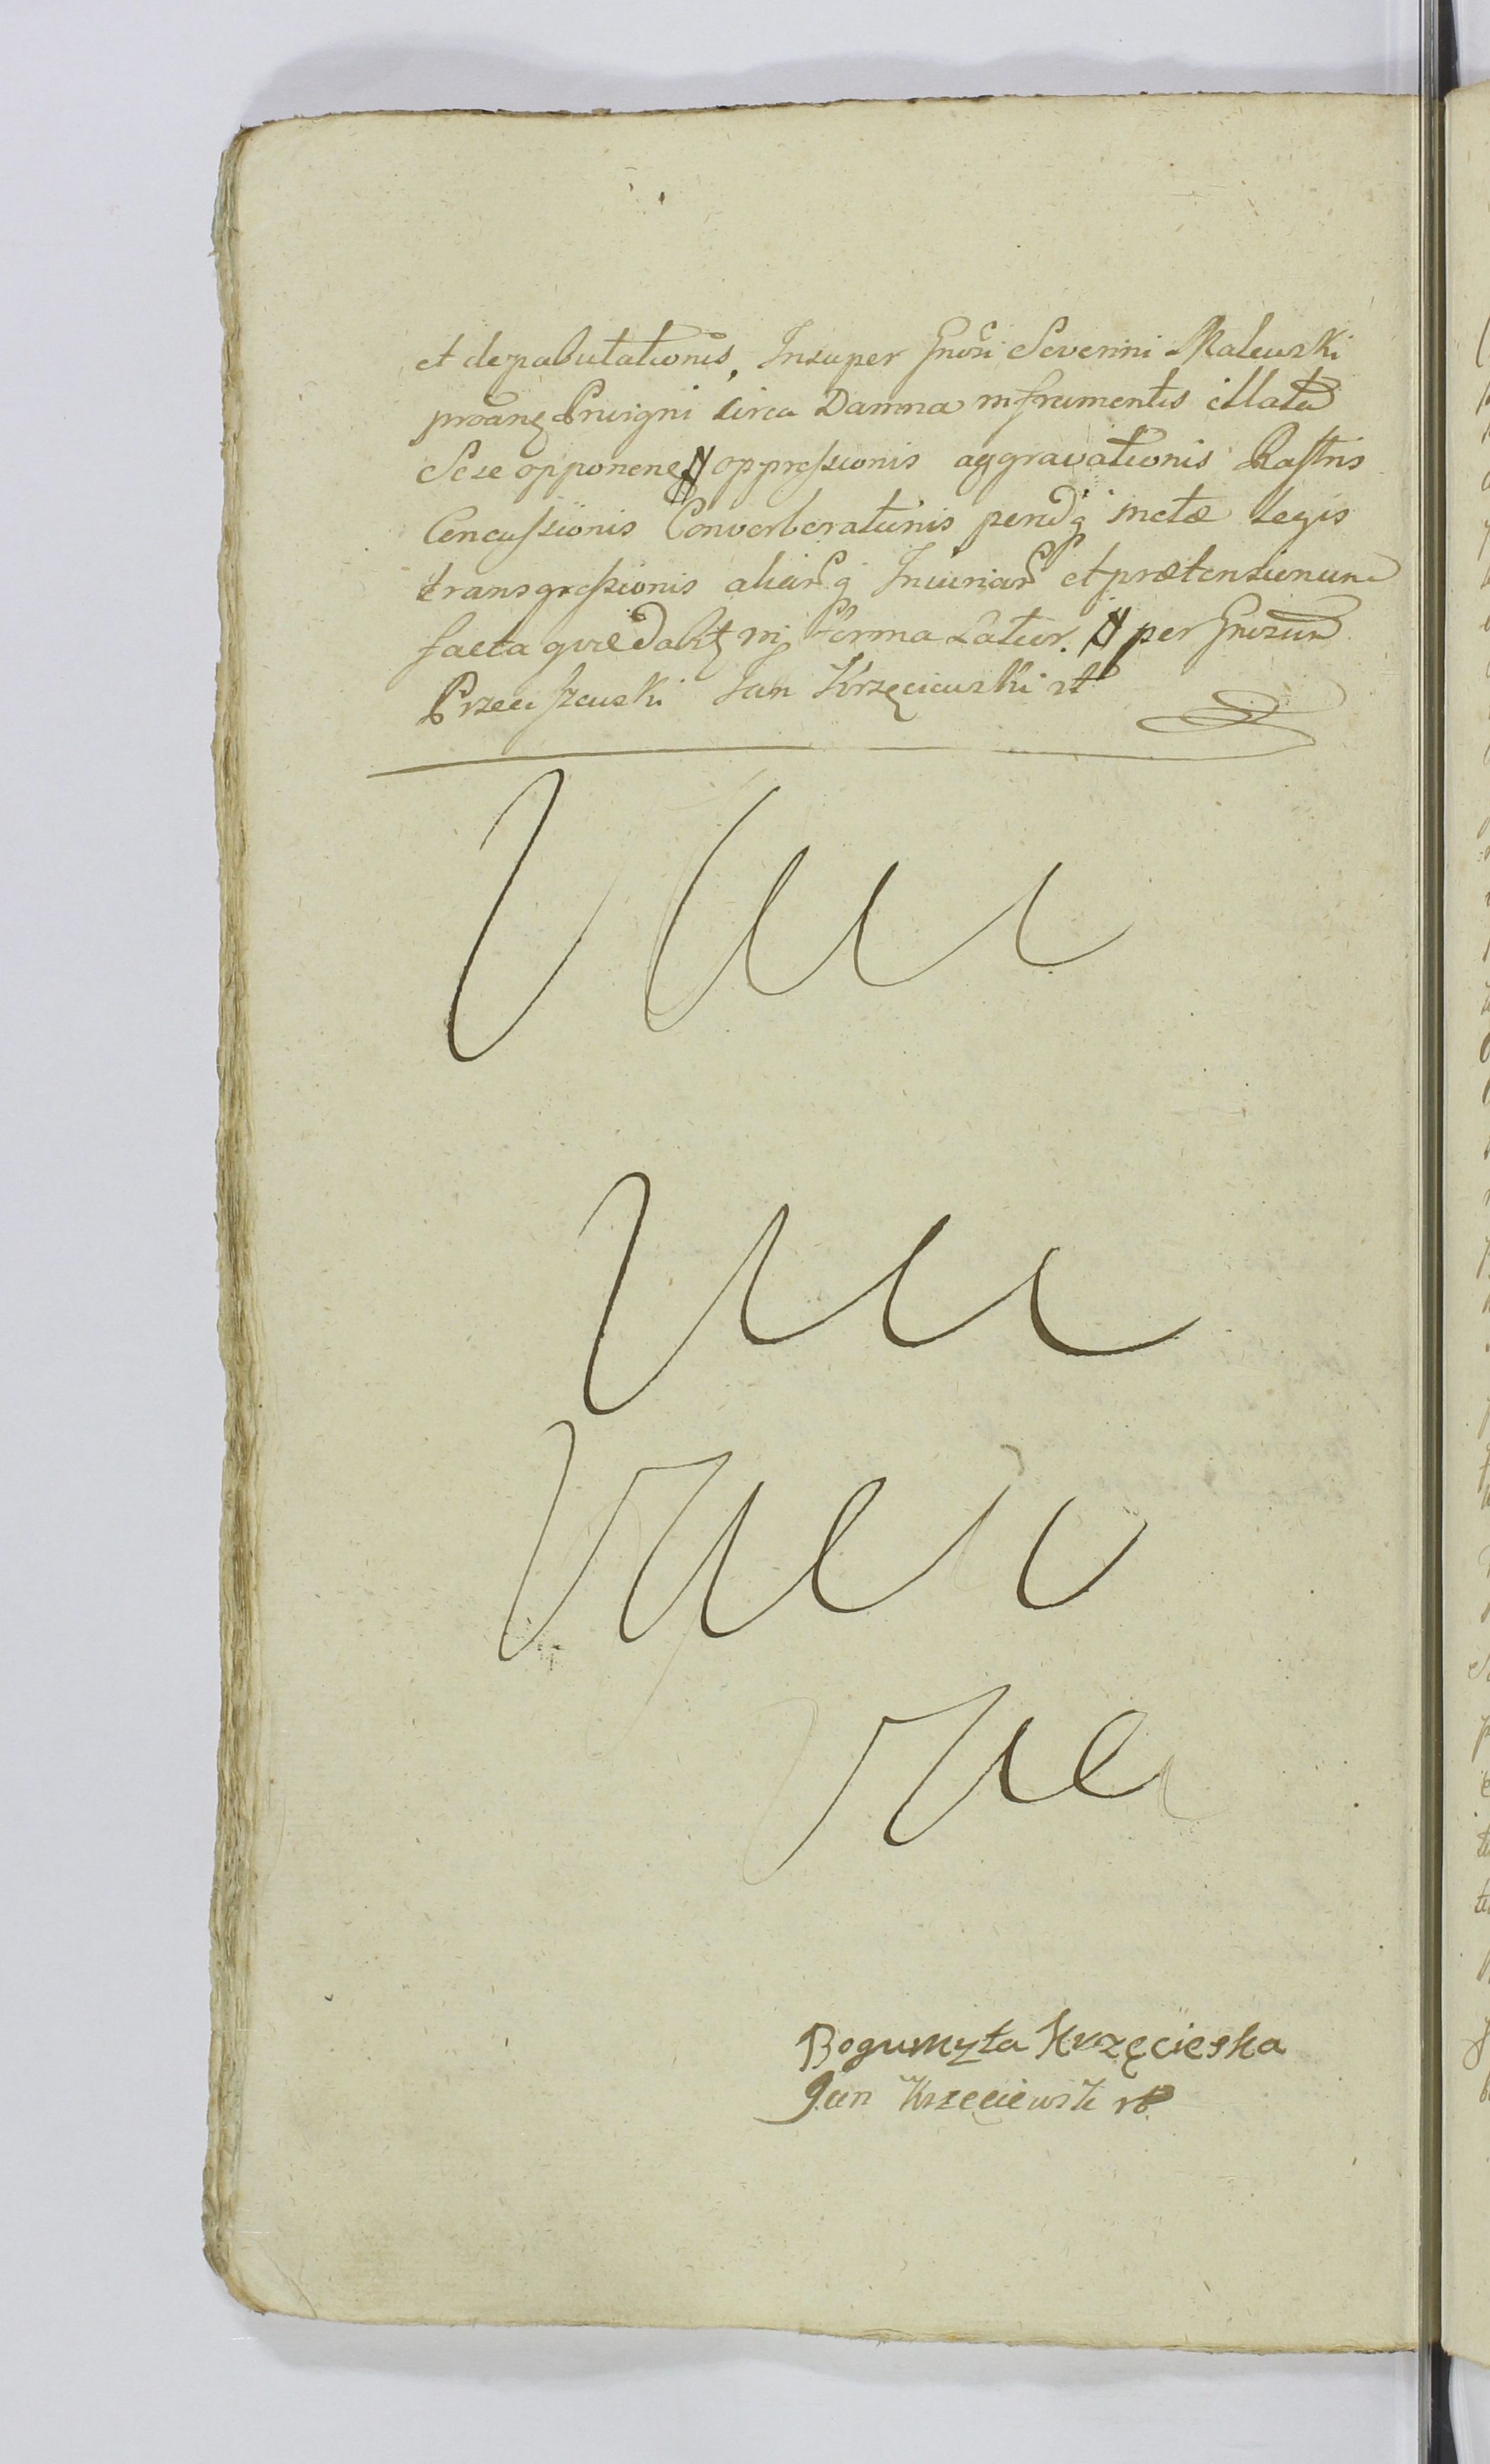 et depabulationis, Insuper Gnosi Severini Malewski
Privigni circa Damna in frumentis illata
Sese opponene oppressionis aggravationis Rastris
Concussionis Converberationis metæ Legis
transgressionis aliarq Iniuriar et prætensionum
facta Forma Latior. per Gnosum
Przeciszewski Jan Krzęciewski
Bogumyła Krzęcieska
Jan Krzeciewski